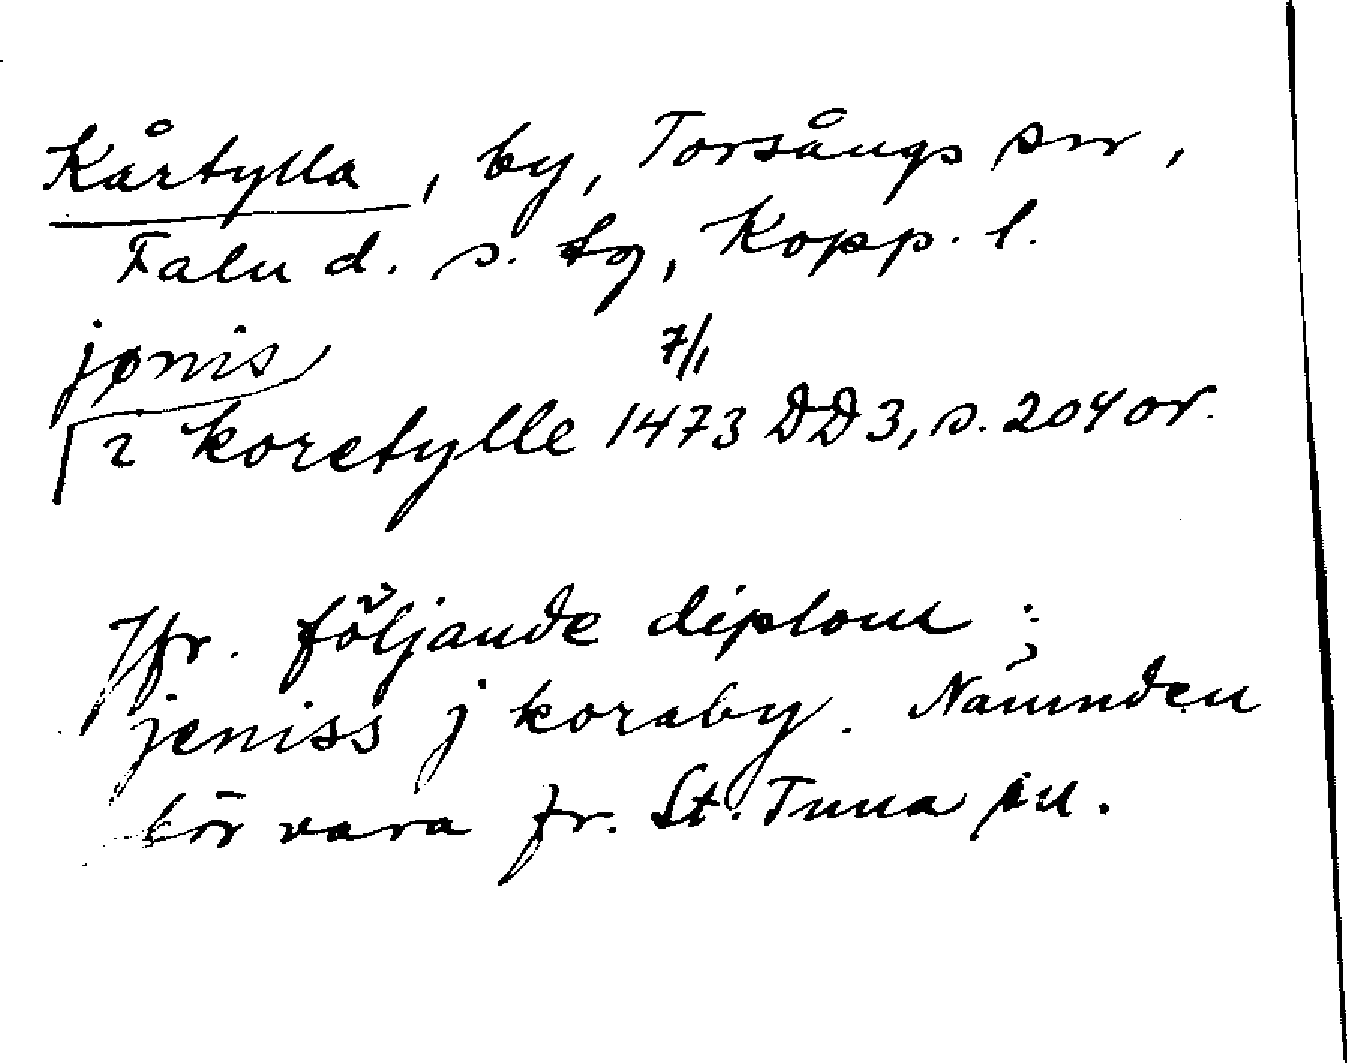 Kårtylla, by, Torsångs sn,
Falu d. s. tg, Kopp. l.
jønis 7/1
i koretylle 1473 DD 3, s. 204 or.
Jfr. följande diplom:
jeniss j koraby. Nämnden
bör vara fr. St. Tuna sn.